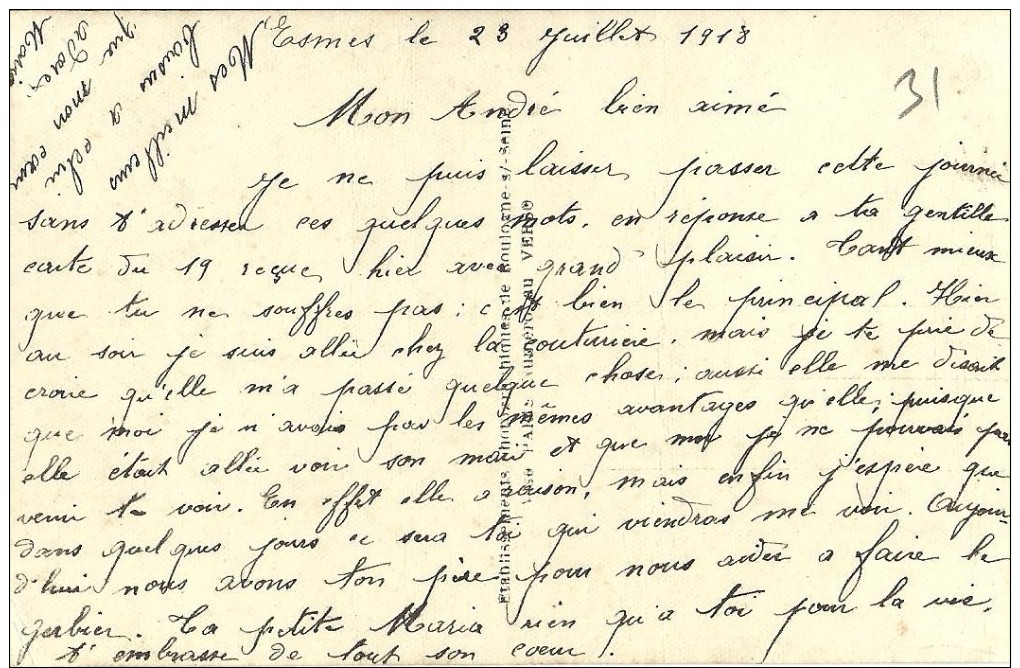 Esmes le 23 Juillet 1918
31
Mon André bien aimé
Je ne puis laisser passer cette journée
sans t'adresser ces quelques mots, en réponse a ta gentille
carte du 19 reçue hier avec grand plaisir. Tant mieux
que tu ne souffres pas ; c'est bien le principal. Hier
au soir je suis allée chez la couturière, mais je te prie de
croire qu'elle m'a passé quelque chose ; aussi elle me disait
que moi je n'avais pas les mêmes avantages qu'elle, puisque
elle était allée voir son mari et que moi je ne pouvais pas
venir te voir. En effet elle a raison, mais enfin j'espère que
dans quelques jours ce sera toi qui viendras me voir. Aujour-
d'hui nous avons ton père pour nous aider a faire le
gerbier. Ta petite Maria rien qu'a toi pour la vie,
t'embrasse de tout son cœur.
Mes meilleurs
baisers a celui
que mon cœur
adore.
Maria
Etablissements Photographiques de Boulogne-s/-Seine
VERSO